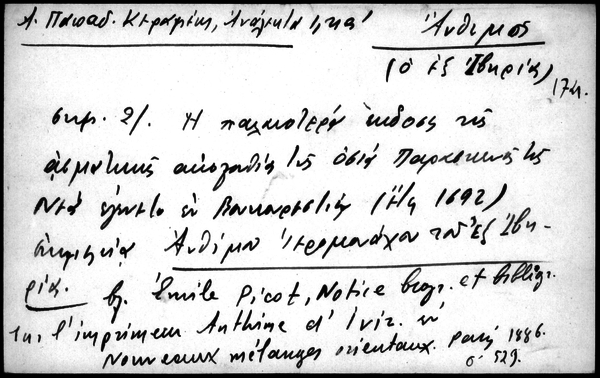 Α. Παπαδ. Κεραμέως, Ἀνάλεκτα
Ἄνθιμος
(ὁ ἐξ Ἰβηρίας)
σημ. 2/. Ἡ παλαιοτέρα ἔκδοσις τῆς
ἀσματικῆς ἀκολουθίας τῆς ὁσίας Παρασκευῆς τῆς
Νέας ἐγένετο ἐν Βουκουρεστίῳ (1692)
Ἀνθίμου ἱερομονάχου τοῦ ἐξ Ἰβη-
ρίας. Émile Picot, Notice biogr. et bibliogr.
sur l'imprimeur Anthime d'Ivir. ἐν
Nouveaux mélanges orientaux. Paris 1886.
σ. 529.